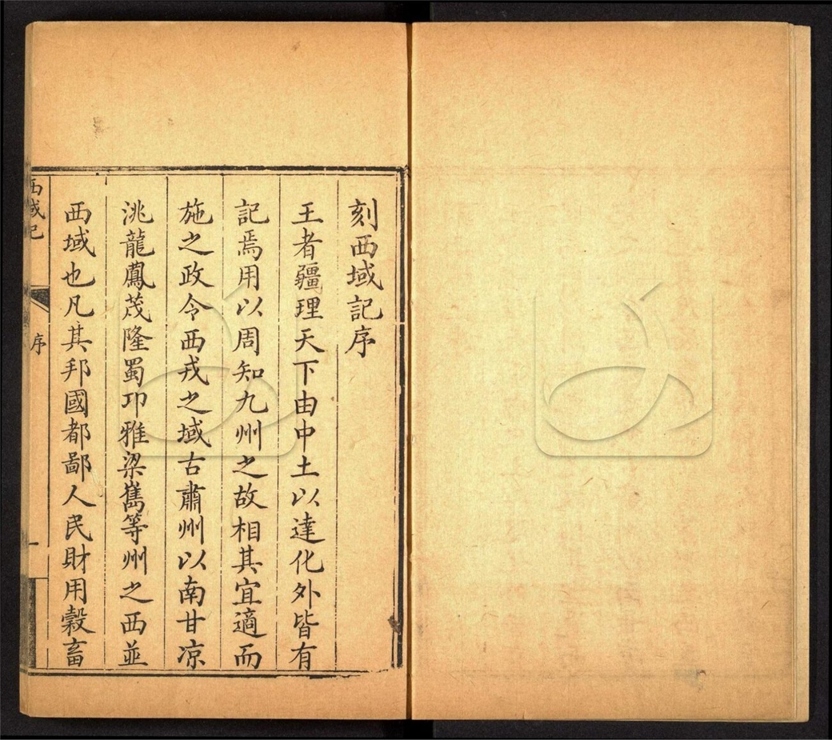 刻西域記序
王者疆理天下由中土以達化外皆有
記焉用以周知九州之故相其宜適而
施之政令西戎之域古肅州以南甘凉
洮龍鳳茂隆蜀卭雅梁雟等州之西並
西域也凡其邦國都鄙人民財用穀畜
西域記
序
一